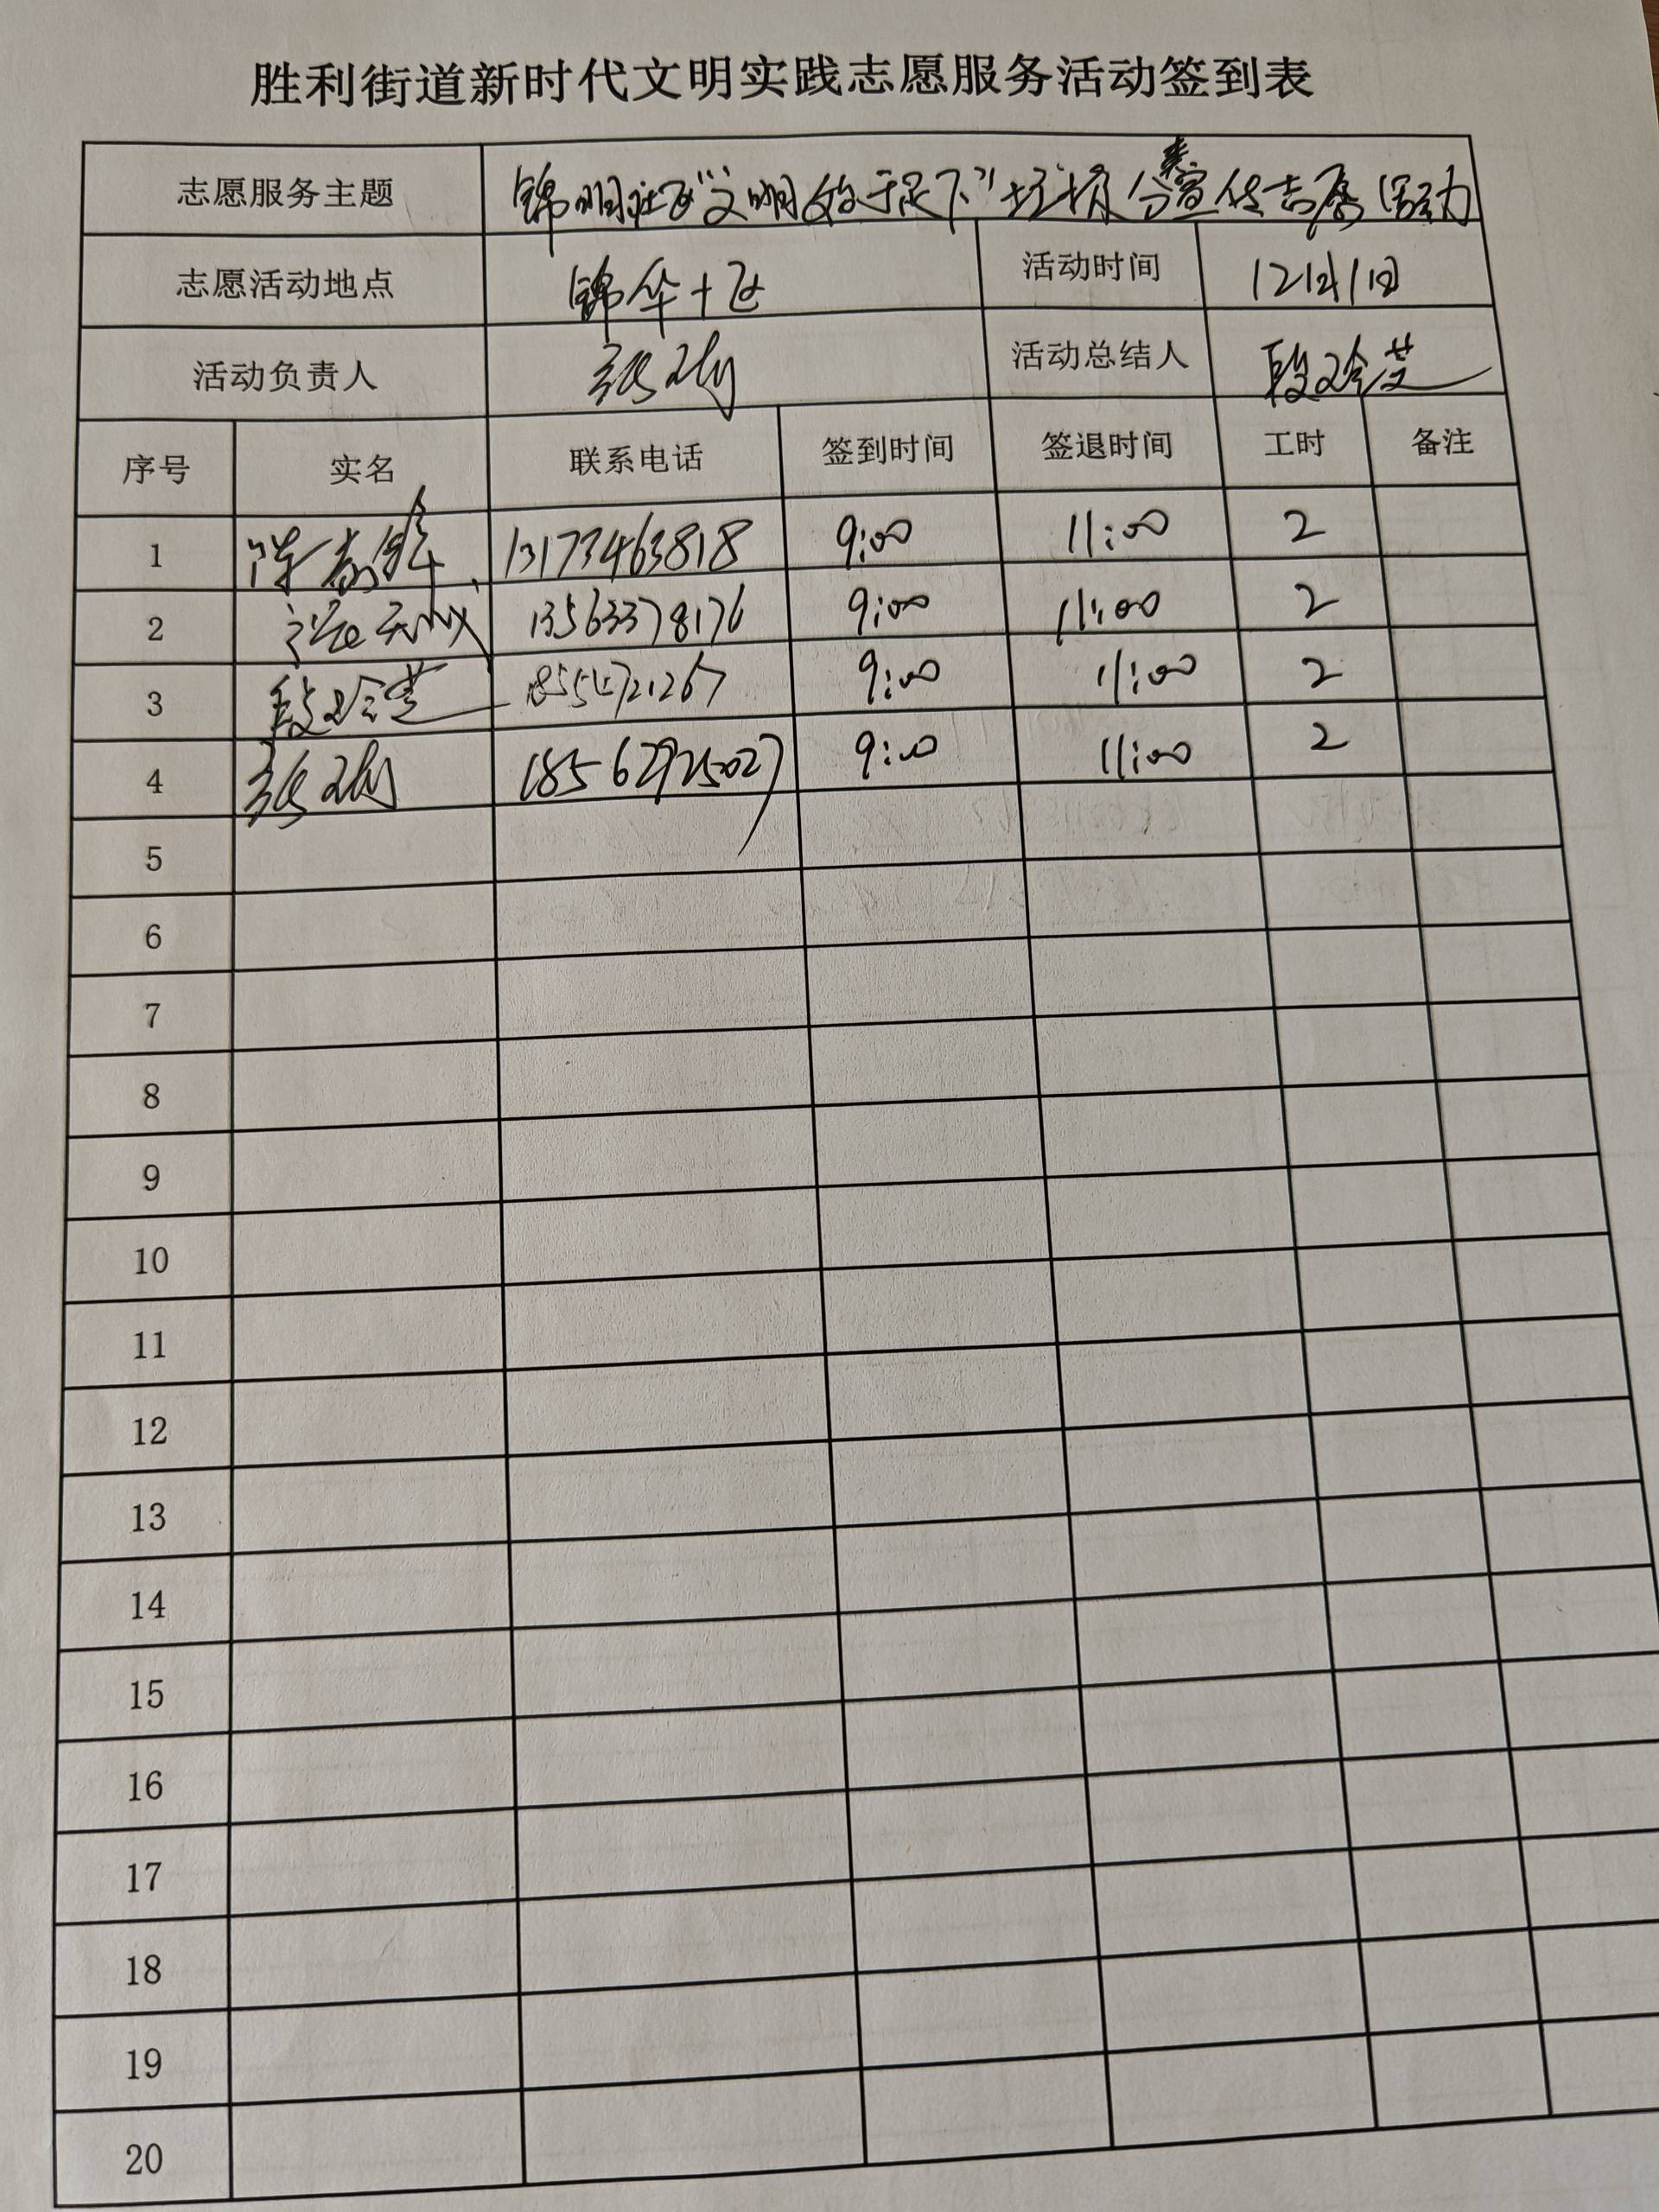 胜利街道新时代文明实践志愿服务活动签到表
志愿服务主题 锦明社区“文明始于足下”垃圾分类宣传志愿活动
志愿活动地点 锦华十区 活动时间 12月1日
活动负责人 活动总结人 段玲芝
序号 实名 联系电话 签到时间 签退时间 工时 备注
1 13173463818 9:00 11:00 2
2 13563378176 9:00 11:00 2
3 段玲芝 9:00 11:00 2
4 18562725027 9:00 11:00 2
5
6
7
8
9
10
11
12
13
14
15
16
17
18
19
20